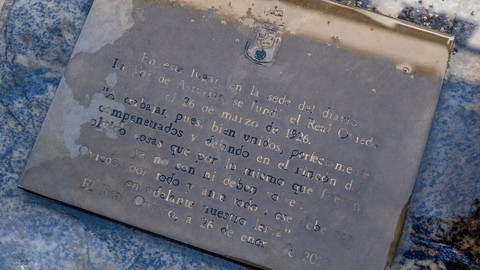 En este lugar, en la sede del diario
de Asturias, se fundó el Real Oviedo
el 26 de marzo de 1926.
"A trabajar, pues, bien unidos, perfectamente
compenetrados y dejando en el rincón d
cosas que por lo mismo que fueron
ya no son ni deben
Oviedo, por todo y ante todo, ese
en adelante nuestro lema"
El Real Oviedo, a 26 de